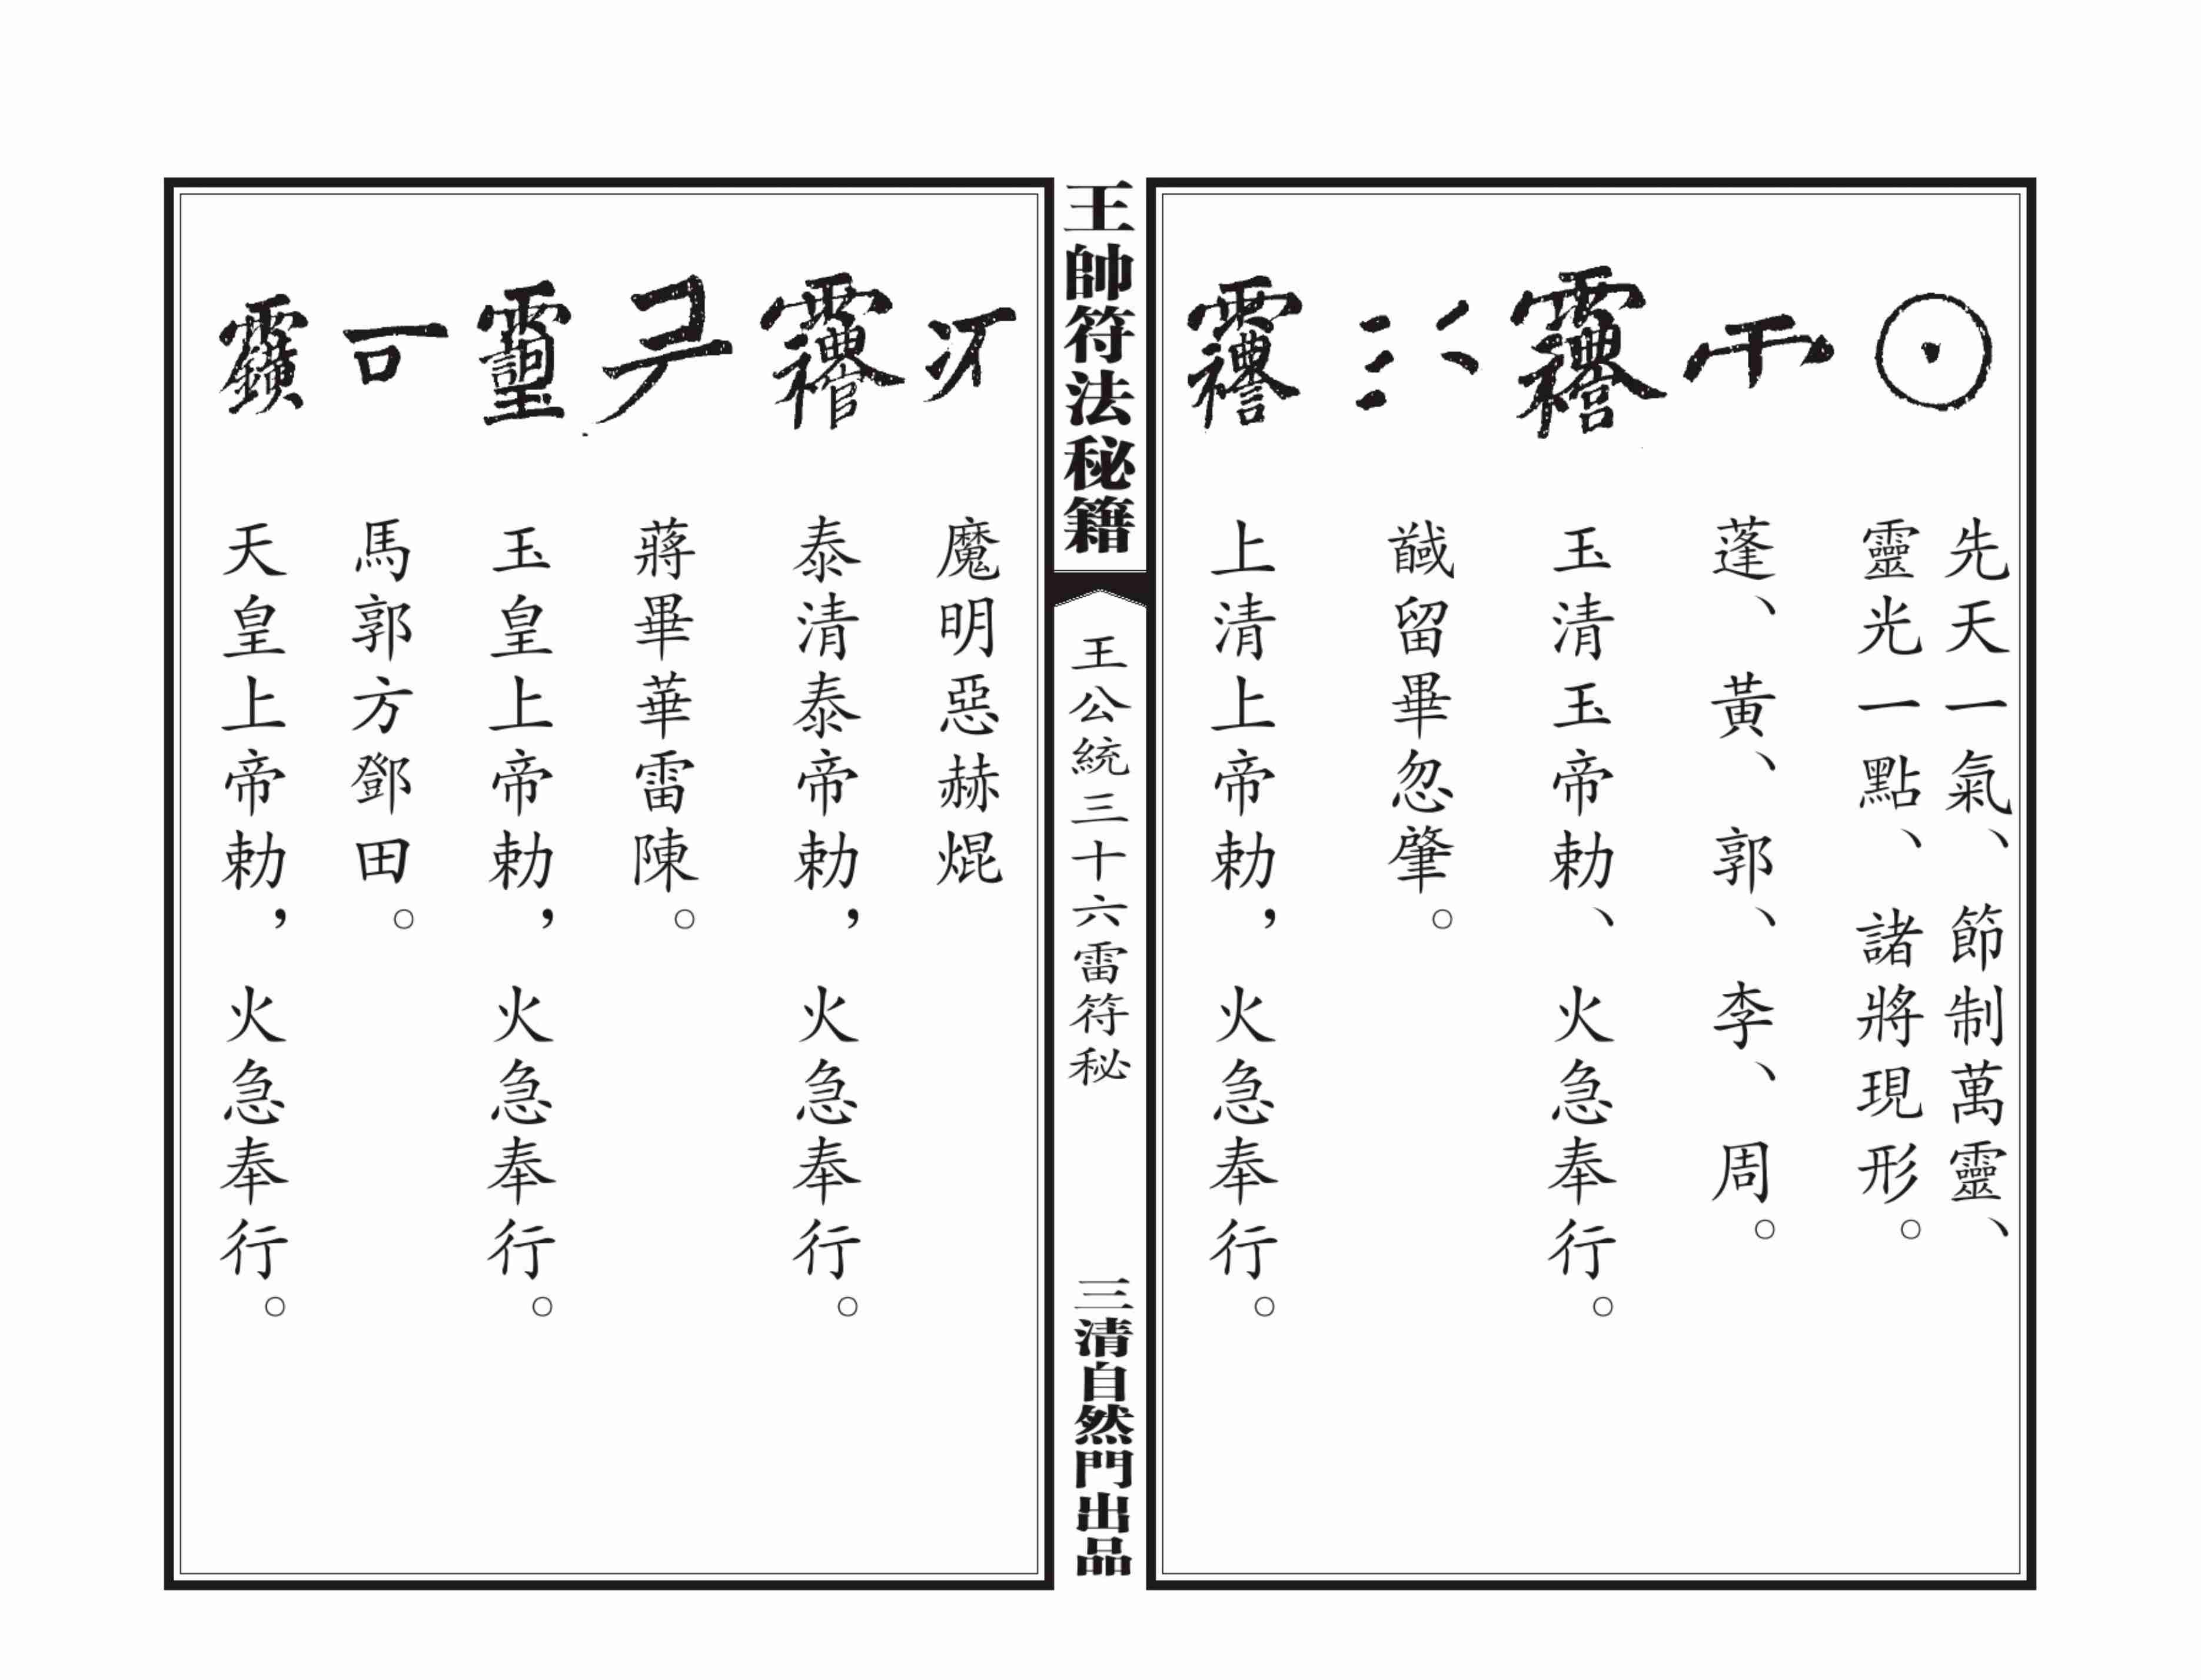 先天一氣、節制萬靈、
靈光一點、諸將現形。
蓬、黃、郭、李、周。
玉清玉帝勅、火急奉行。
馘留畢忽肇。
上清上帝勅，火急奉行。
王帥符法秘籍
王公統三十六雷符秘
三清自然門出品
魔明惡赫焜
泰清泰帝勅，火急奉行。
蔣畢華雷陳。
玉皇上帝勅，火急奉行。
馬郭方鄧田。
天皇上帝勅，火急奉行。